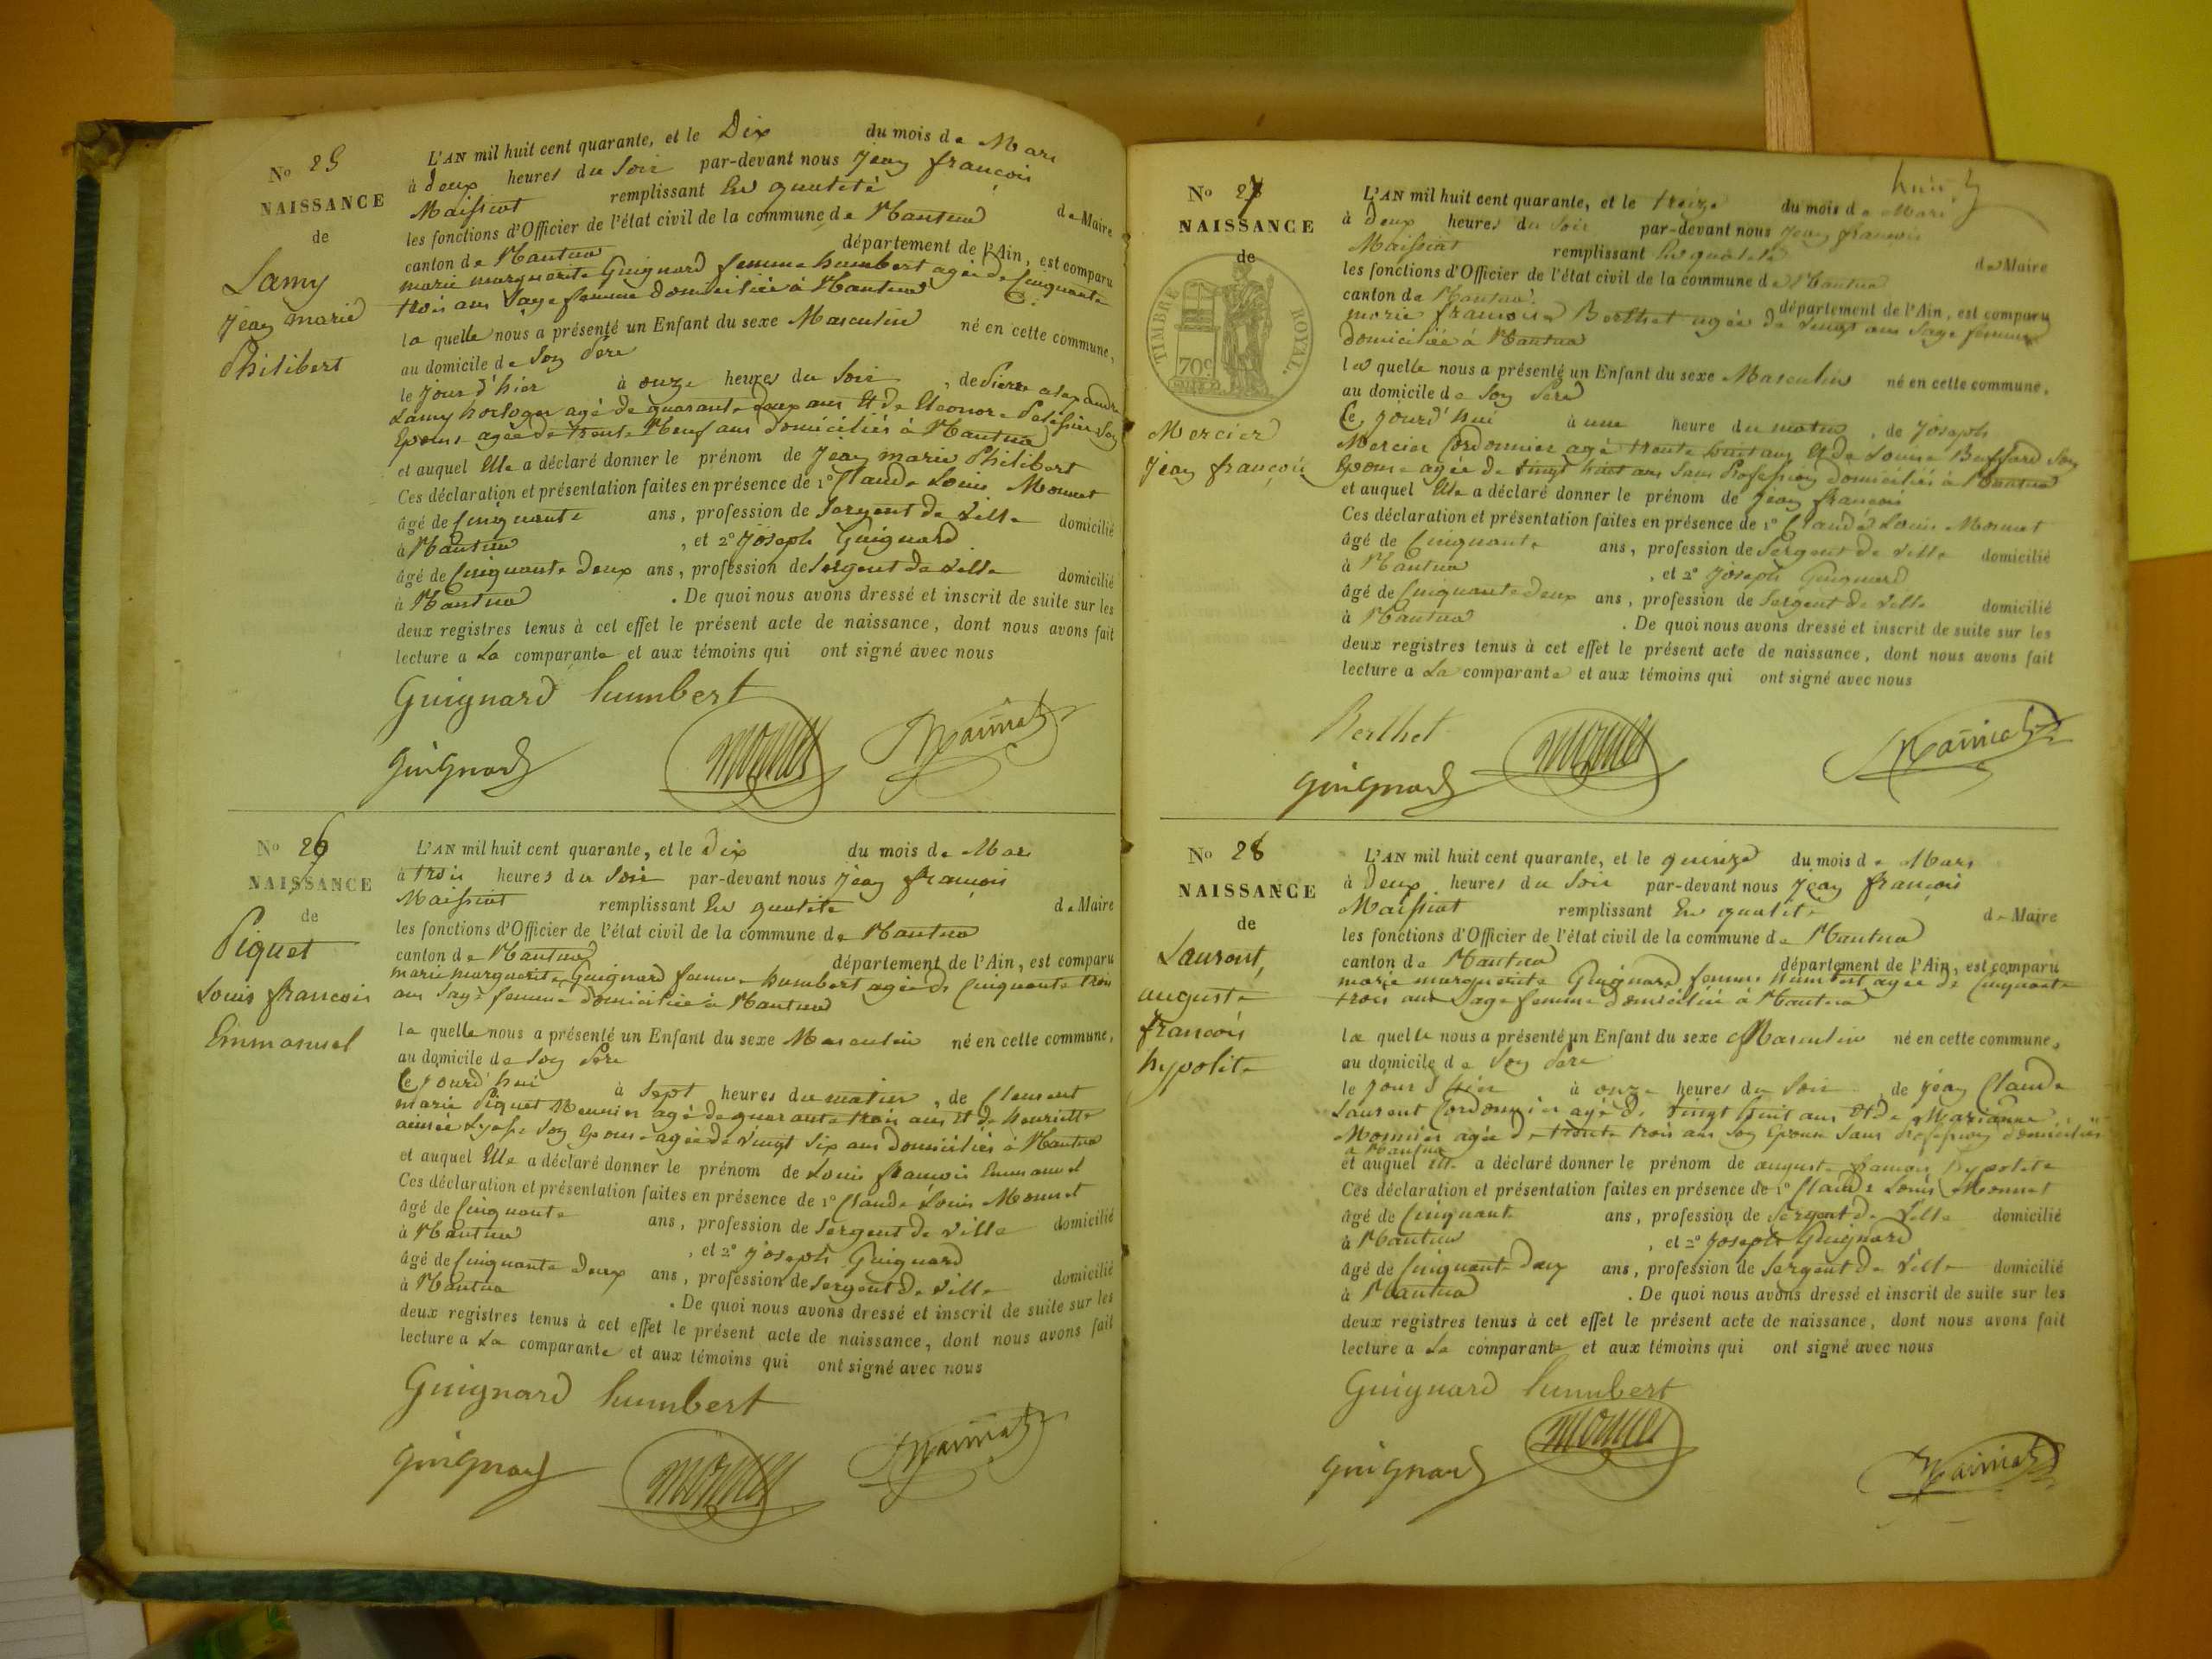 No 25
NAISSANCE
de
Lamy
jean marie
Philibert
L'AN mil huit cent quarante, et le Dix du mois de Mars
à deux heures du Soir par-devant nous jean françois
Maissiat remplissant En qualité de Maire
les fonctions d'Officier de l'état civil de la commune de Nantua
canton de Nantua département de l'Ain, est comparu
marie marguerite Guignard femme humbert agée de Cinquante
trois ans Sage femme domiciliée à Nantua
la quelle nous a présenté un Enfant du sexe Masculin né en cette commune,
au domicile de Son Père
le jour d'hier à onze heures du Soir, de Pierre alexandre
Lamy horloger agé de quarante deux ans Et de Eleonore Son
Epouse agée de trente Neuf ans domiciliés à Nantua
et auquel Elle a déclaré donner le prénom de jean marie Philibert
Ces déclaration et présentation faites en présence de 1o Claude Louis Monnet
âgé de Cinquante ans, profession de Sergent de Ville domicilié
à Nantua, et 2o joseph Guignard
âgé de Cinquante deux ans, profession de Sergent de Ville domicilié
à Nantua. De quoi nous avons dressé et inscrit de suite sur les
deux registres tenus à cet effet le présent acte de naissance, dont nous avons fait
lecture a La comparante et aux témoins qui ont signé avec nous
Guignard humbert
Guignard Monnet Maissiat
No 26
NAISSANCE
de
Piquet
Louis francois
Emmanuel
L'AN mil huit cent quarante, et le dix du mois de Mars
à trois heures du Soir par-devant nous jean françois
Maissiat remplissant En qualité de Maire
les fonctions d'Officier de l'état civil de la commune de Nantua
canton de Nantua département de l'Ain, est comparu
marie marguerite Guignard femme humbert agée de Cinquante trois
ans Sage femme domiciliée à Nantua
la quelle nous a présenté un Enfant du sexe Masculin né en cette commune,
au domicile de Son Père
Ce jourd'hui à Sept heures du matin, de Clement
marie Piquet Meunier agé de quarante trois ans Et de henriette
aimée Son Epouse agée de Vingt Six ans domiciliés à Nantua
et auquel Elle a déclaré donner le prénom de Louis françois Emmanuel
Ces déclaration et présentation faites en présence de 1o Claude Louis Monnet
âgé de Cinquante ans, profession de Sergent de Ville domicilié
à Nantua, et 2o joseph Guignard
âgé de Cinquante deux ans, profession de Sergent de Ville domicilié
à Nantua. De quoi nous avons dressé et inscrit de suite sur les
deux registres tenus à cet effet le présent acte de naissance, dont nous avons fait
lecture a La comparante et aux témoins qui ont signé avec nous
Guignard humbert
Guignard Monnet Maissiat
No 27
NAISSANCE
de
TIMBRE ROYAL
70c
Mercier
jean françois
L'AN mil huit cent quarante, et le treize du mois de Mars
à deux heures du Soir par-devant nous jean francois
Maissiat remplissant En qualité de Maire
les fonctions d'Officier de l'état civil de la commune de Nantua
canton de Nantua département de l'Ain, est comparu
marie francoise Berthet agée de ans Sage femme
domiciliée à Nantua
la quelle nous a présenté un Enfant du sexe Masculin né en cette commune.
au domicile de Son Père
Ce jourd'hui à une heure du matin, de joseph
Mercier Cordonnier agé trente huit ans Et de Louise Buffard Son
Epouse agée de Vingt huit ans Sans Profession domiciliés à Nantua
et auquel Elle a déclaré donner le prénom de jean françois
Ces déclaration et présentation faites en présence de 1o Claude Louis Monnet
âgé de Cinquante ans, profession de Sergent de Ville domicilié
à Nantua, et 2o joseph Guignard
âgé de Cinquante deux ans, profession de Sergent de Ville domicilié
à Nantua. De quoi nous avons dressé et inscrit de suite sur les
deux registres tenus à cet effet le présent acte de naissance, dont nous avons fait
lecture a La comparante et aux témoins qui ont signé avec nous
Berthet
Guignard Monnet Maissiat
No 28
NAISSANCE
de
Laurent
auguste
francois
hypolite
L'AN mil huit cent quarante, et le quinze du mois de Mars
à Deux heures du Soir par-devant nous jean francois
Maissiat remplissant En qualité de Maire
les fonctions d'Officier de l'état civil de la commune de Nantua
canton de Nantua département de l'Ain, est comparu
marie marguerite Guignard femme humbert agée de Cinquante
trois ans Sage femme domiciliée à Nantua
la quelle nous a présenté un Enfant du sexe Masculin né en cette commune,
au domicile de Son Père
le jour d'hier à onze heures du Soir, de jean Claude
Laurent Cordonnier agé de Vingt huit ans Et de Marianne
Monnier agée de trente trois ans Son Epouse Sans Profession domiciliés
a Nantua
et auquel Elle a déclaré donner le prénom de auguste francois hypolite
Ces déclaration et présentation faites en présence de 1o Claude Louis Monnet
âgé de Cinquante ans, profession de Sergent de Ville domicilié
à Nantua, et 2o joseph Guignard
âgé de Cinquante deux ans, profession de Sergent de Ville domicilié
à Nantua. De quoi nous avons dressé et inscrit de suite sur les
deux registres tenus à cet effet le présent acte de naissance, dont nous avons fait
lecture a La comparante et aux témoins qui ont signé avec nous
Guignard humbert
Guignard Monnet Maissiat